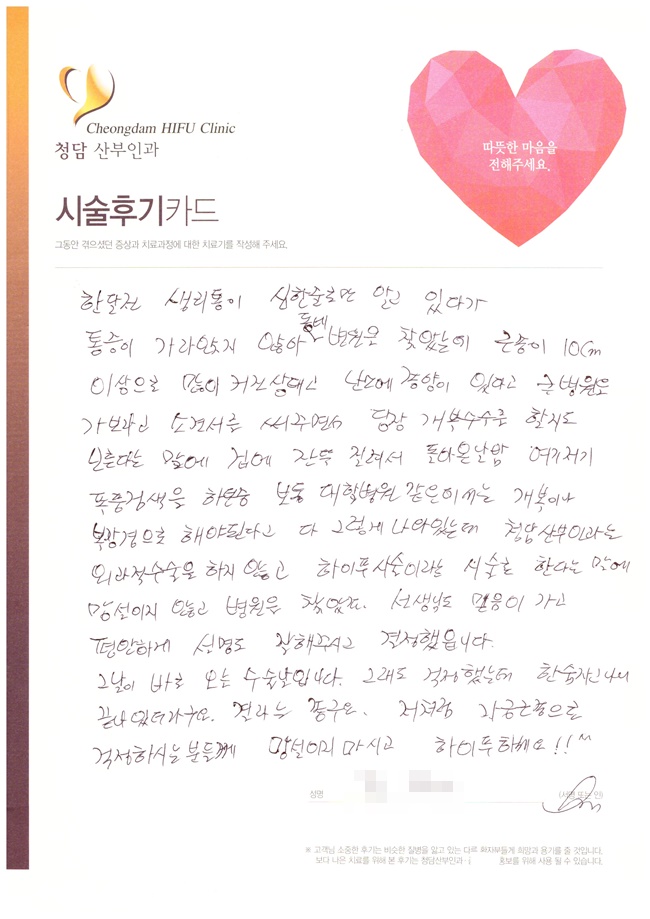 Cheongdam HIFU Clinic
청담 산부인과
따뜻한 마음을
전해주세요.
시술후기카드
그동안 겪으셨던 증상과 치료과정에 대한 치료기를 작성해 주세요.
한달전 생리통이 심한줄로만 알고 있다가
통증이 가라앉지 않아 동네 병원을 찾았는데 근종이 10cm
이상으로 많이 커진상태고 난소에 종양이 있다고 큰병원으로
가보라고 소견서를 써주면서 당장 개복수술을 할지도
모른다는 말에 집에 잔뜩 질려서 돌아온날밤 여기저기
폭풍검색을 하던중 보통 대학병원 같은데서는 개복이나
복강경으로 해야된다고 다 그렇게 나와있는데 청담산부인과는
외과적수술을 하지 않고 하이푸시술이라는 시술을 한다는 말에
망설이지 않고 병원을 찾았죠. 선생님도 믿음이 가고
평안하게 설명도 잘해주시고 결정했습니다.
그날이 바로 오늘 수술날입니다. 그래도 걱정했는데 한숨자고나니
끝나있더라구요. 결과는 좋구요. 저처럼 자궁근종으로
걱정하시는분들께 망설이지 마시고 하이푸하세요!! ^^
성명
(서명 또는 인)
※ 고객님 소중한 후기는 비슷한 질병을 앓고 있는 다른 환자분들게 희망과 용기를 줄 것입니다.
보다 나은 치료를 위해 본 후기는 청담산부인과 홍보를 위해 사용 될 수 있습니다.